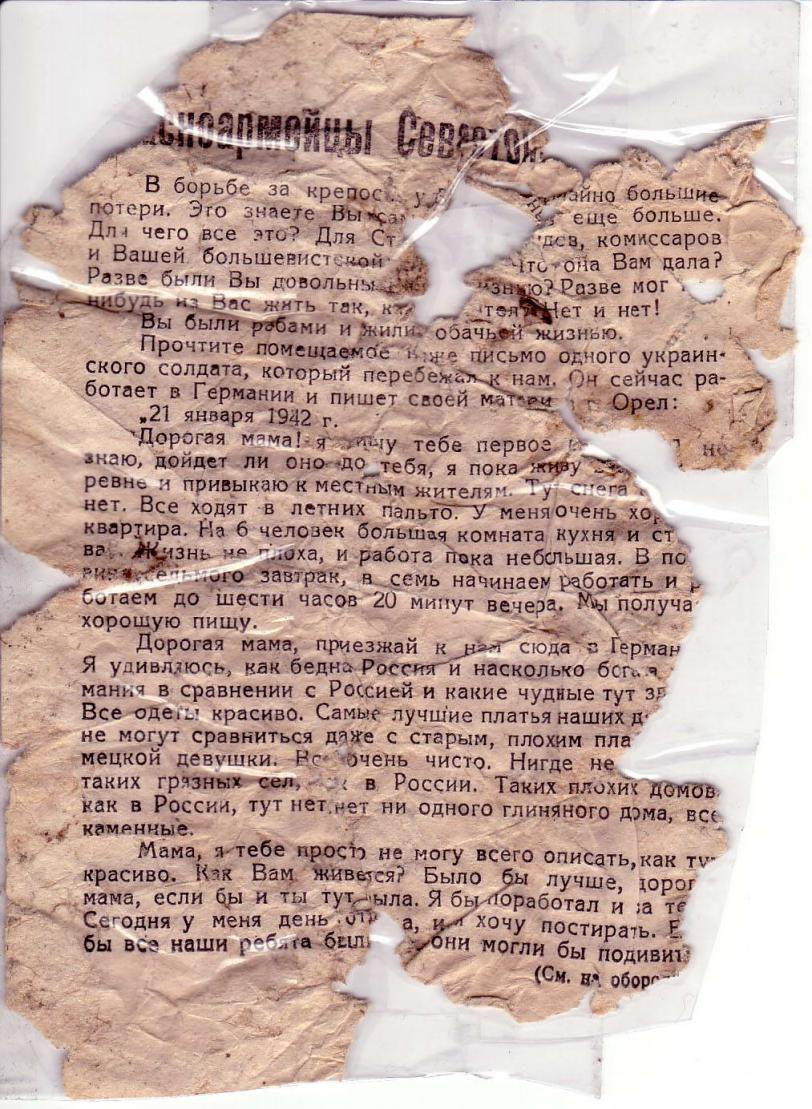 сноармейцы Севастоп
В борьбе за крепос у айно большие
потери. Это знаете Вы са еще больше.
Для чего все это? Для Ст дев, комиссаров
и Вашей большевистской что она Вам дала?
Разве были Вы довольны знию? Разве мог
нибудь из Вас жить так, Нет и нет!
Вы были рабами и жили обачьей жизнью.
Прочтите помещаемое ниже письмо одного украин-
ского солдата, который перебежал к нам. Он сейчас ра-
ботает в Германии и пишет своей матери Орел:
„21 января 1942 г.
"Дорогая мама! я пишу тебе первое не
знаю, дойдет ли оно до тебя, я пока живу
ревне и привыкаю к местным жителям. Тут снега
нет. Все ходят в летних пальто. У меня очень хор
квартира. На 6 человек большая комната кухня и ст
ва Жизнь не плоха, и работа пока небольшая. В по
седьмого завтрак, в семь начинаем работать и р
ботаем до шести часов 20 минут вечера. Мы получа
хорошую пищу.
Дорогая мама, приезжай к нам сюда в Герман
Я удивляюсь, как бедна Россия и насколько бога
мания в сравнении с Россией и какие чудные тут зд
Все одеты красиво. Самые лучшие платья наших д
не могут сравниться даже с старым, плохим пла
мецкой девушки. Все очень чисто. Нигде не
таких грязных сел, как в России. Таких плохих домов
как в России, тут нет, нет ни одного глиняного дома, все
каменные.
Мама, я тебе просто не могу всего описать, как тут
красиво. Как Вам живется? Было бы лучше, дорог
мама, если бы и ты тут была. Я бы поработал и за те
Сегодня у меня день от а, и я хочу постирать. Е
бы все наши ребята были они могли бы подивит
(См. на оборо